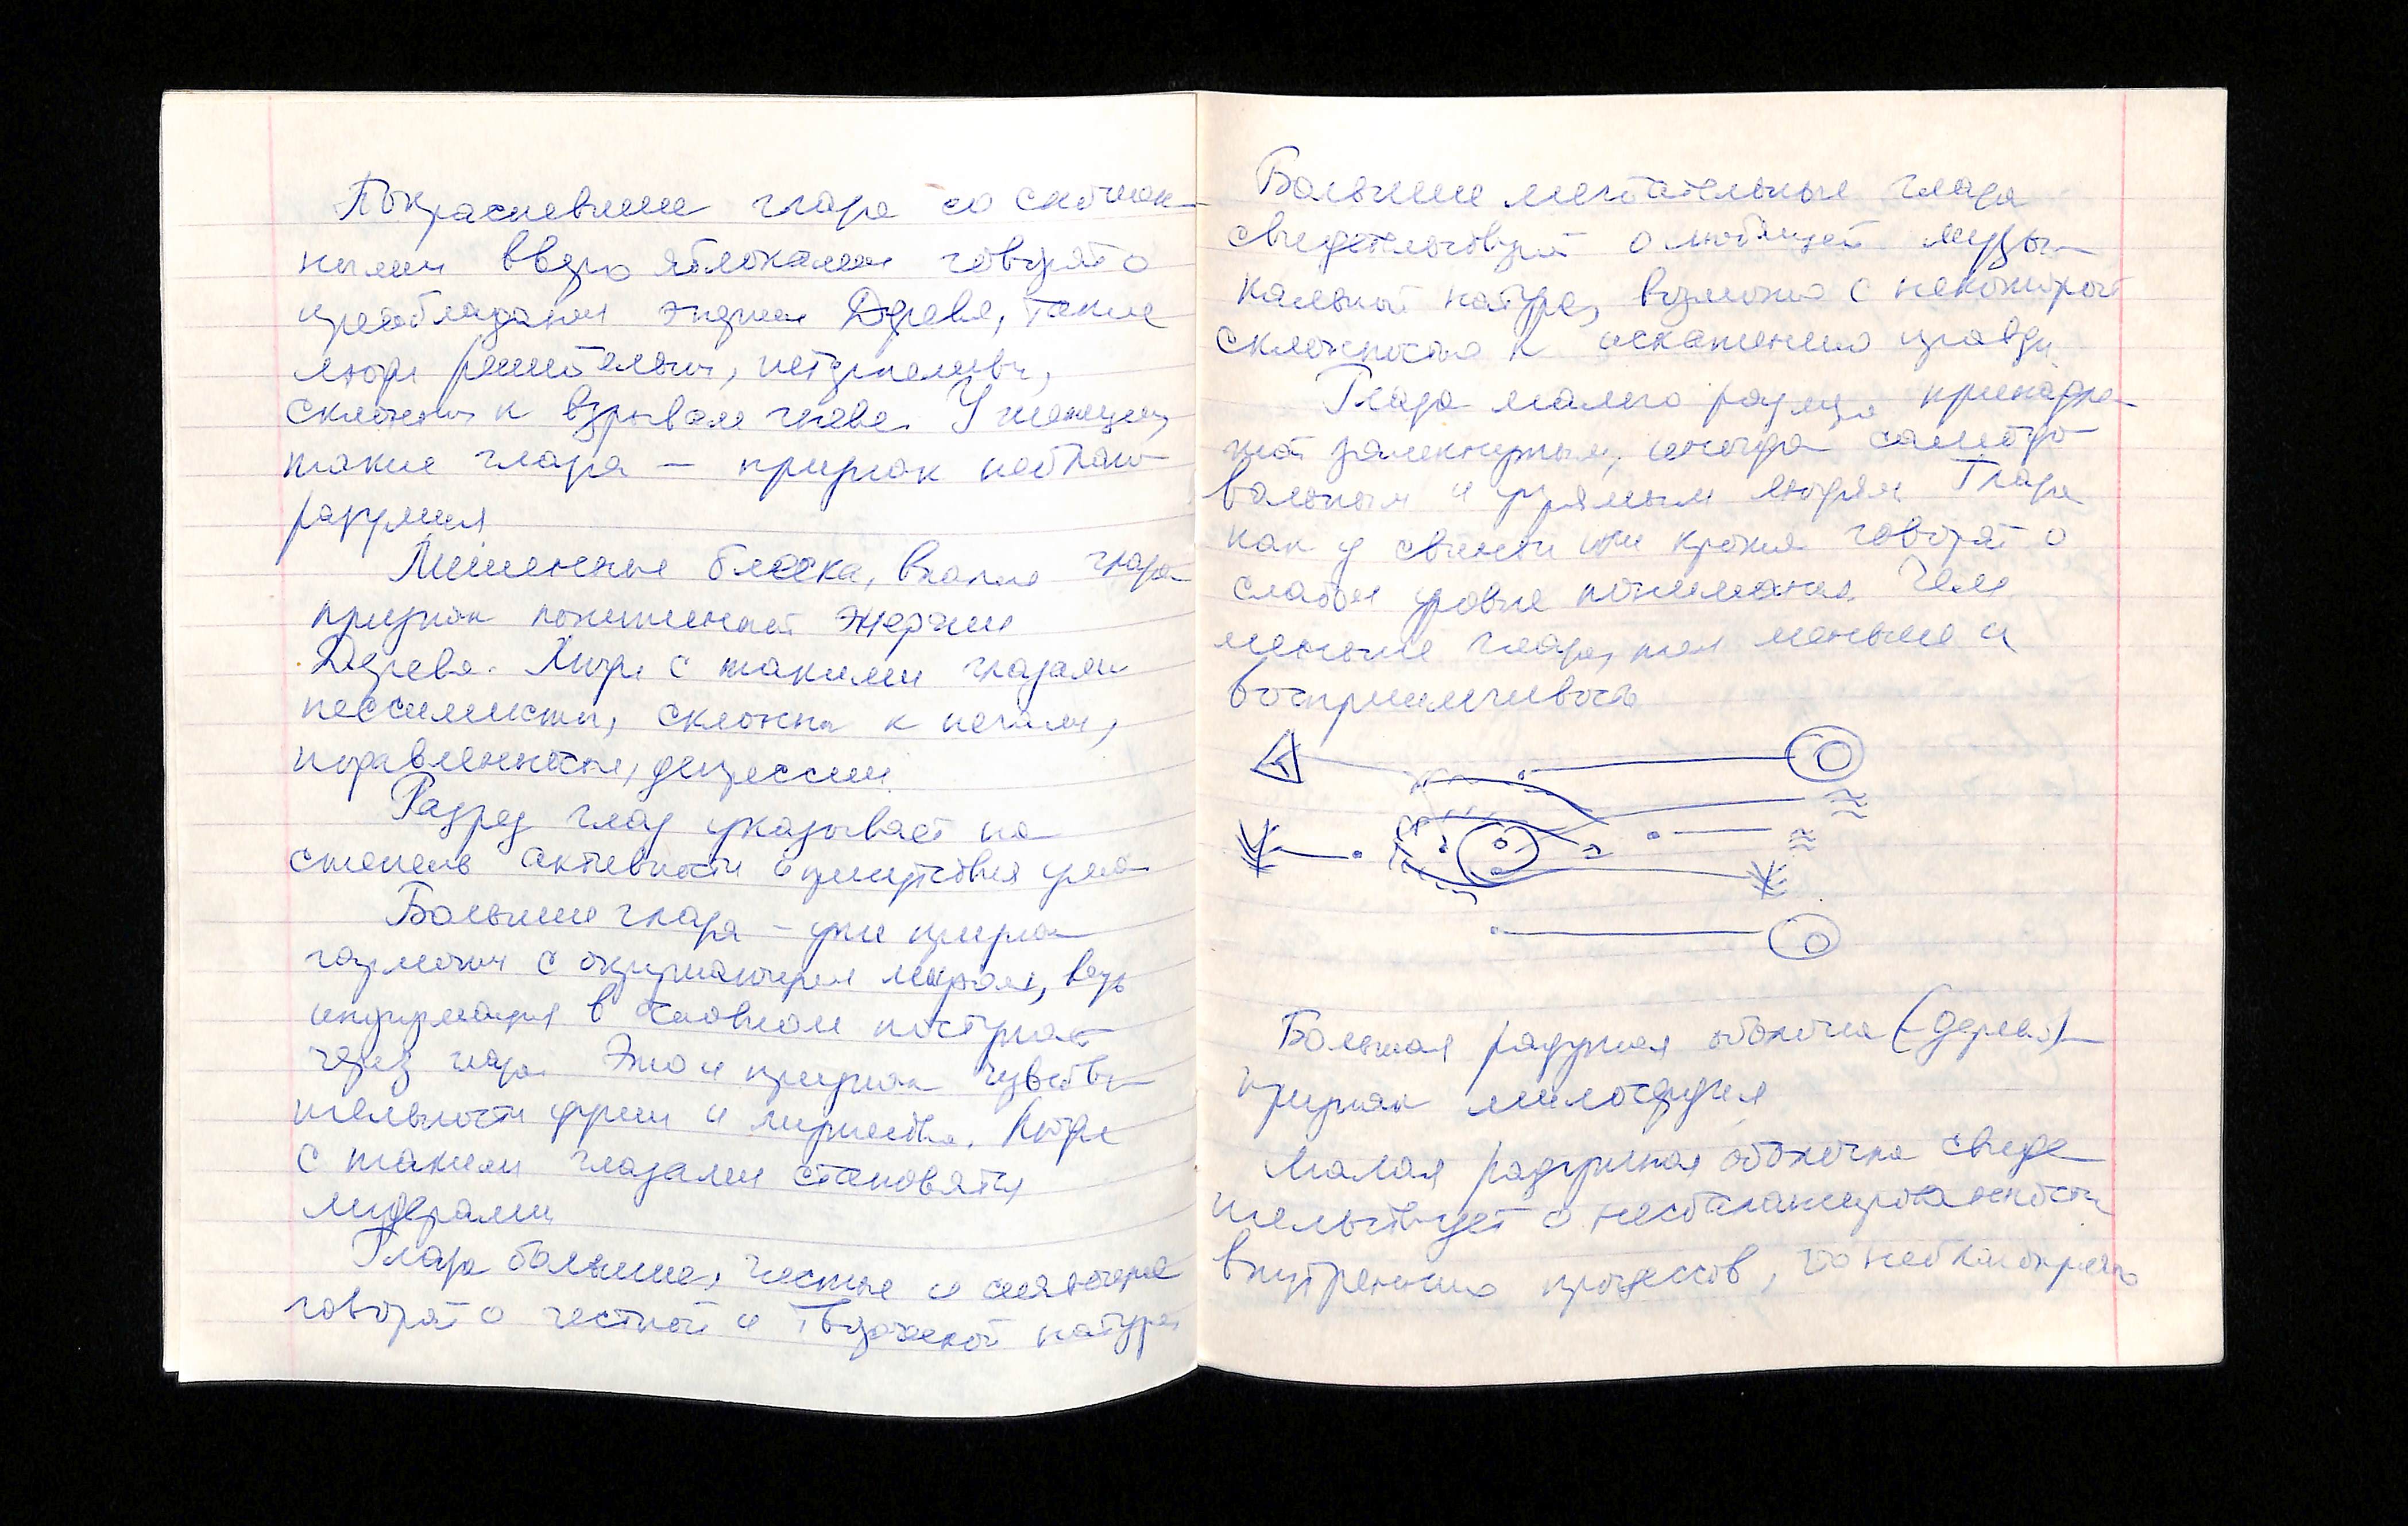 Покрасневшие глаза со скошен-
ными вверх яблоками говорят о
преобладании энергии Дерева, такие
люди решительны, нетерпеливы,
склонны к взрывам гнева. У женщин
такие глаза — признак неблаго-
разумия
Лишенные блеска, впалые глаза
признак пониженной энергии
Дерева. Люди с такими глазами
пессимисты, склонны к печали,
подавленности, депрессии.
Разрез глаз указывает на
степень активности и присутствия ума
Большие глаза – уже признак
гармонии с окружающим миром, ведь
информация в основном поступает
через глаза. Это и признак чувстви-
тельности души и лидерства. Люди
с такими глазами становятся
лидерами
Глаза большие, чистые и сияющие
говорят о честной и творческой натуре
Большие мечтательные глаза
свидетельствуют о любящей музы-
кальной натуре, возможно с некоторой
склонностью к искажению правды
Глаза малого размера принадле-
жат замкнутым, иногда самодо-
вольным и упрямым людям Глаза
как у свиньи или кролика говорят о
слабом уровне понимания Чем
меньше глаза, тем меньше и
восприимчивость
Большая радужная оболочка (дерево) –
признак милосердия
Малая радужная оболочка свиде
тельствует о несбалансированности
внутренних процессов, что неблагоприятно